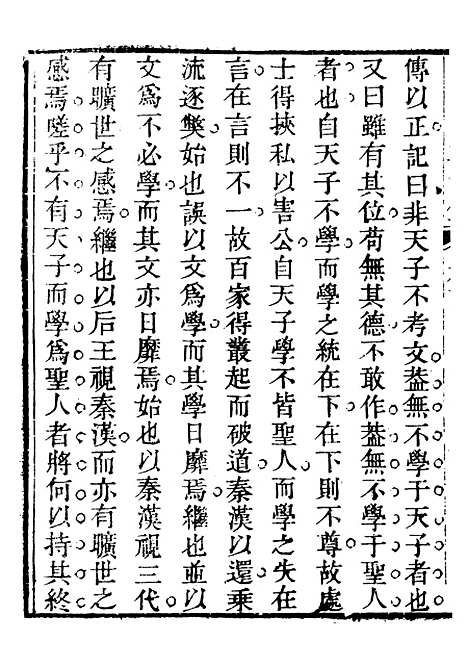 傳以正記曰非天子不考文葢無不學于天子者也
又曰雖有其位苟無其德不敢作葢無不學于聖人
者也自天子不學而學之統在下在下則不尊故處
士得挾私以害公自天子學不皆聖人而學之失在
言在言則不一故百家得叢起而破道秦漢以還乗
流逐獘始也誤以文爲學而其學日靡焉繼也並以
文爲不必學而其文亦日靡焉始也以秦漢視三代
有曠世之感焉繼也以后王視秦漢而亦有曠世之
感焉嗟乎不有天子而學爲聖人者將何以持其終